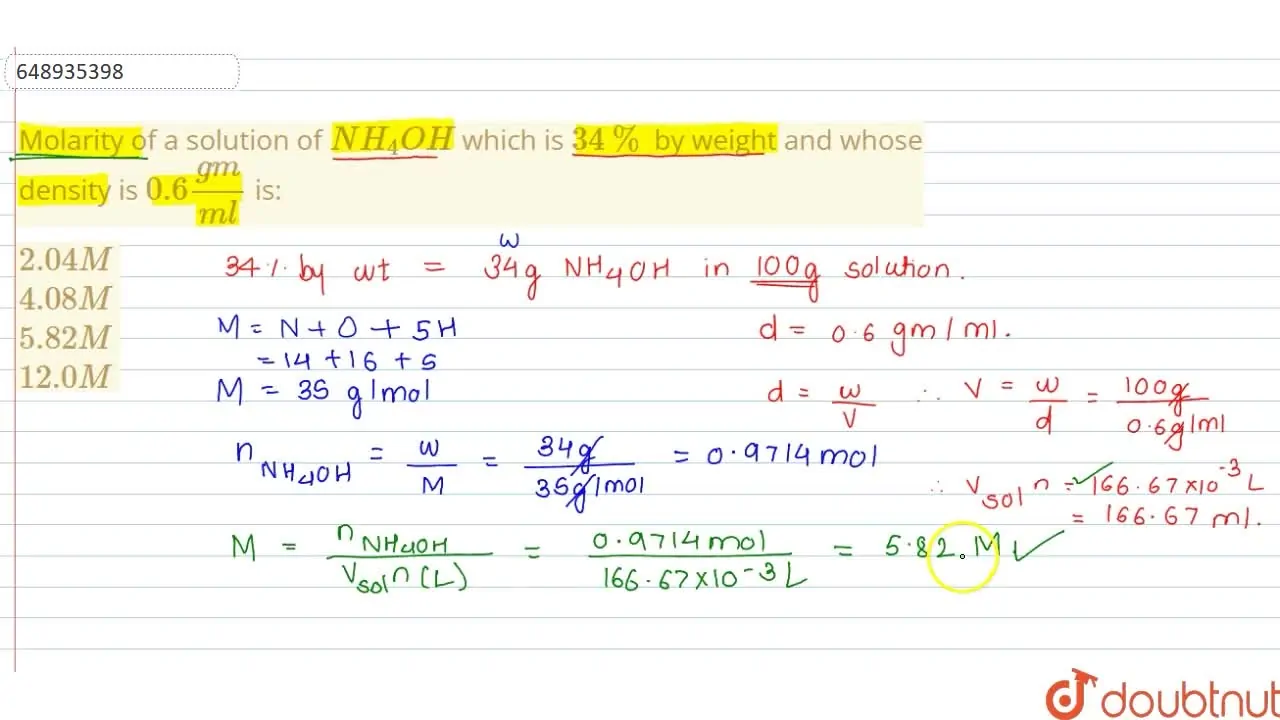 648935398
Molarity of a solution of NH₄OH which is 34 % by weight and whose
density is 0.6 gm/ml is:
2.04M
4.08M
5.82M
12.0M
w
34 % by wt = 34g NH₄OH in 100g solution.
M = N + O + 5H
= 14 + 16 + 5
M = 35 g/mol
d = 0.6 gm/ml.
d = w/V ∴ V = w/d = 100g/0.6g/ml
n NH₄OH = w/M = 34g/35g/mol = 0.9714 mol
∴ Vsolⁿ = 166.67×10⁻³ L
= 166.67 ml.
M = n NH₄OH/Vsolⁿ(L) = 0.9714 mol/166.67×10⁻³ L = 5.82 M ✓
doubtnut